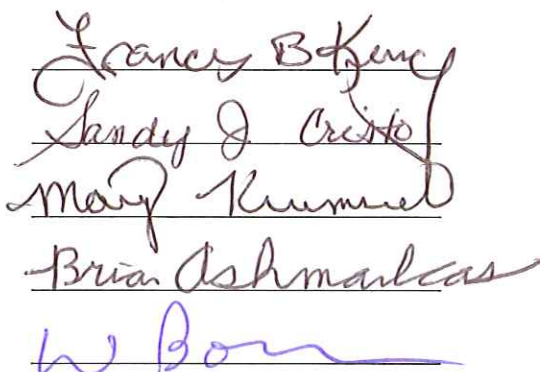 Francis B King
Sandy J. Cristof
Mary Krummel
Brian Ashmankas
W Bor